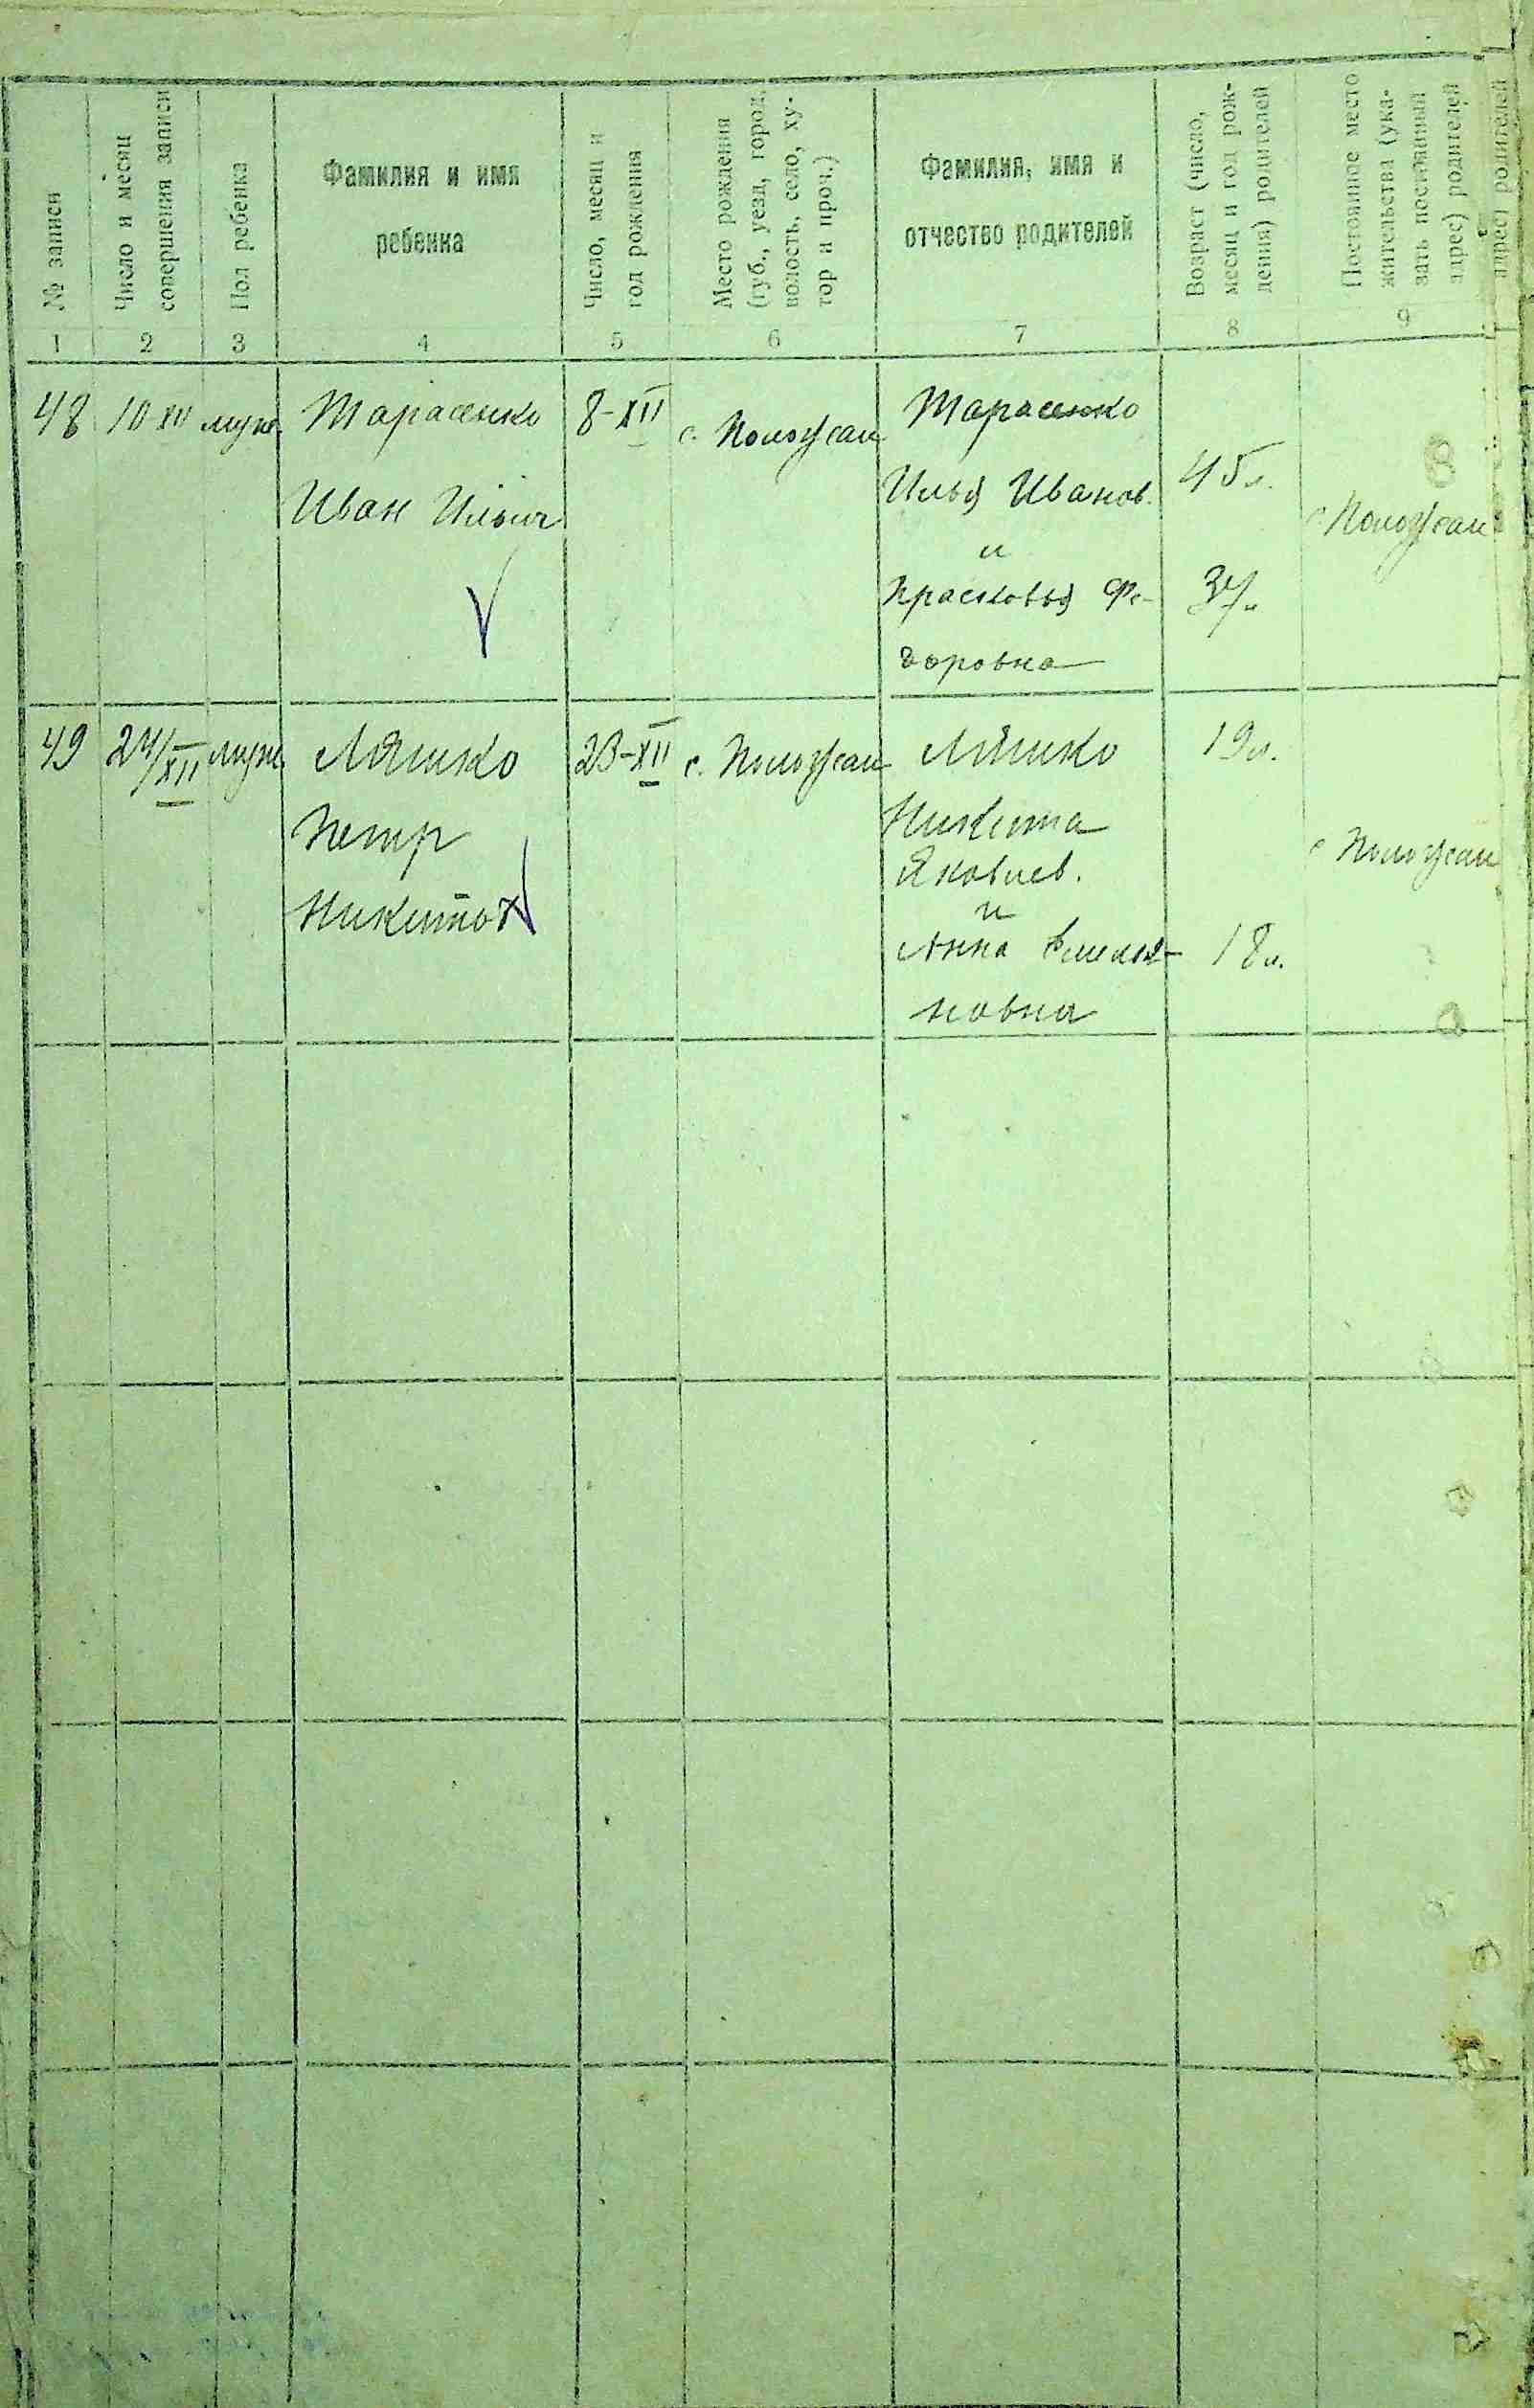 № записи
Число и месяц
совершения записи
Пол ребенка
Фамилия и имя
ребенка
Число, месяц и
год рождения
Место рождения
(губ., уезд, город,
волость, село, ху-
тор и проч.)
Фамилия, имя и
отчество родителей
Возраст (число,
месяц и год рож-
дения) родителей
Постоянное место
жительства (ука-
зать постоянный
адрес) родителей
адрес) родителей
1 2 3 4 5 6 7 8 9
48 10 XII муж. Тарасенко 8-XII с. Тарасенко
Иван Ильич Илья Иванов. 45 л.
и
Прасковья Фе- 37 л.
доровна
49 24/XII муж Ляшко 23-XII с. Ляшко 19 л.
Петр Никита
Яковлев.
Никитов и
Анна Емелья- 18 л.
новна